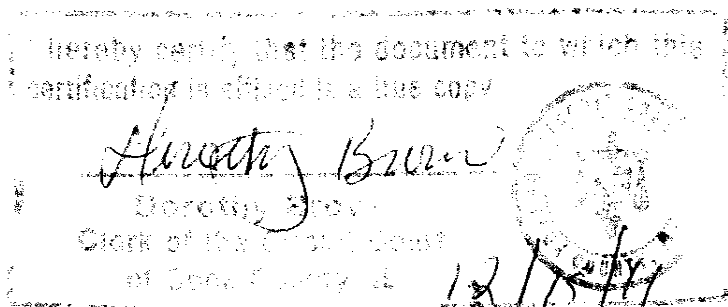 I hereby certify that the document to which this
certification is affixed is a true copy
Dorothy Brown
Dorothy Brown
Clerk of the Circuit Court
of Cook County, IL